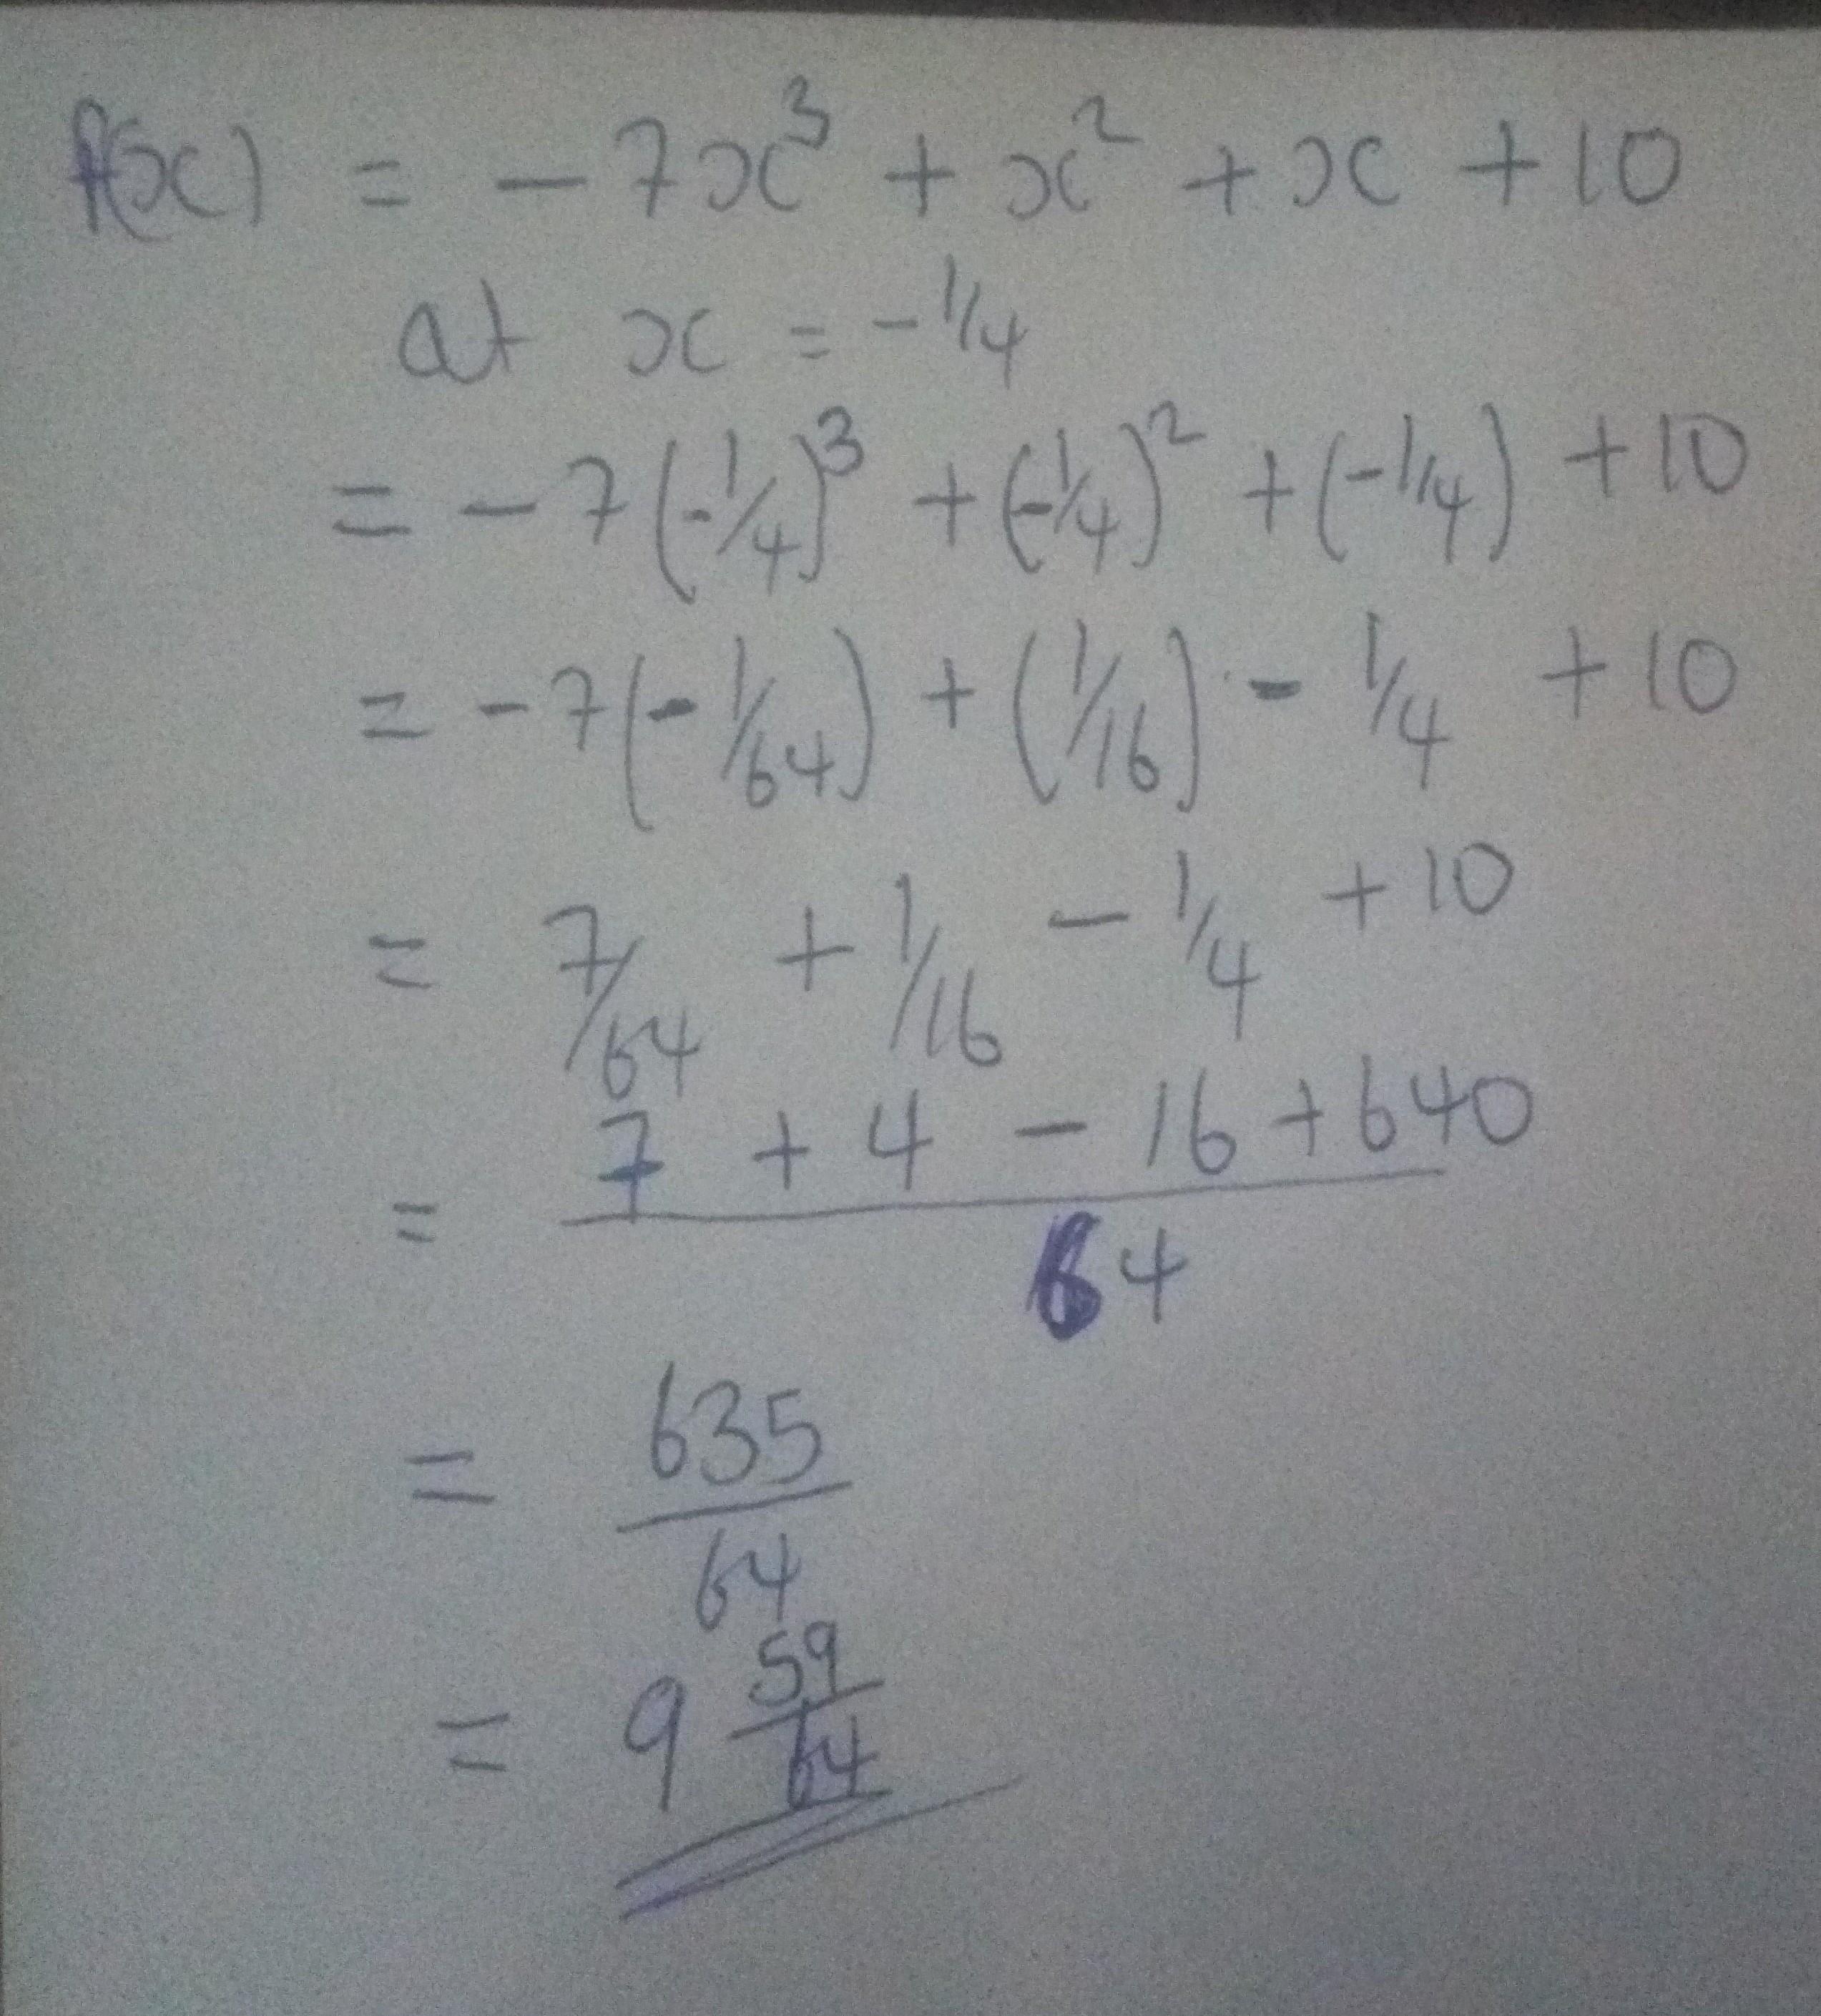 f(x) = - 7x³ + x² + x + 10
at x = -1/4
= - 7(-1/4)³ + (-1/4)² + (-1/4) + 10
= - 7(-1/64) + (1/16) - 1/4 + 10
= 7/64 + 1/16 - 1/4 + 10
= 7 + 4 - 16 + 640
64
= 635
64
= 9 59/64